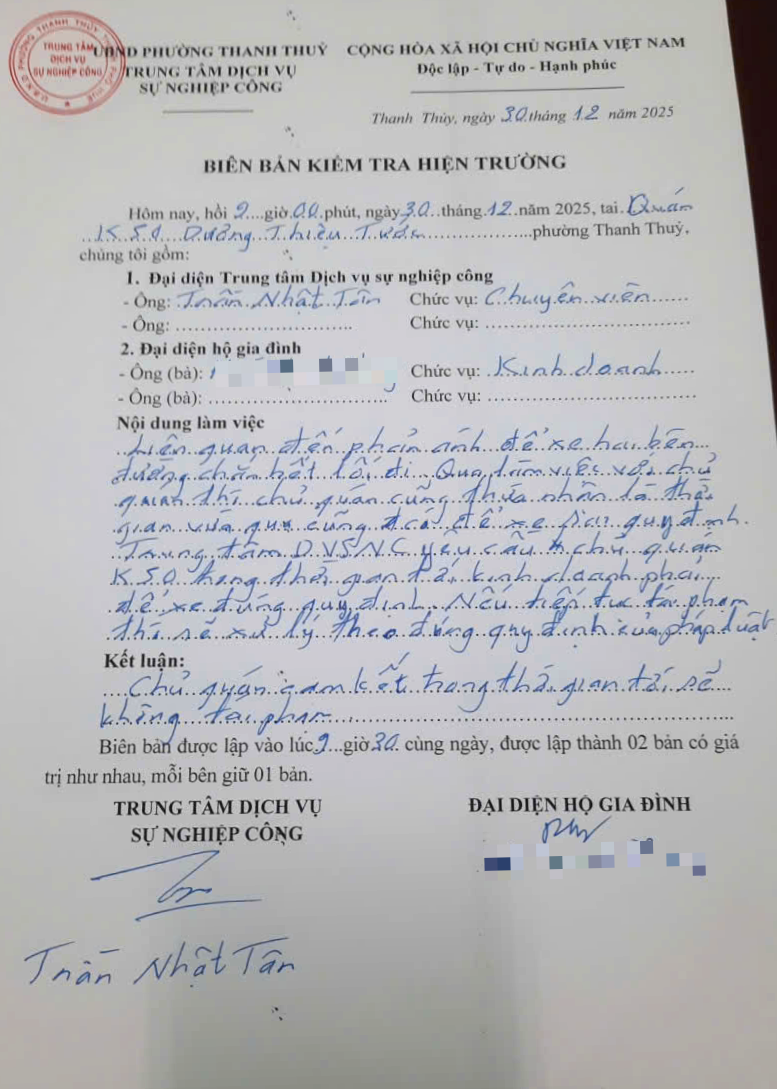 UBND PHƯỜNG THANH THUỶ
TRUNG TÂM DỊCH VỤ
SỰ NGHIỆP CÔNG
TRUNG TÂM
DỊCH VỤ
SỰ NGHIỆP CÔNG
CỘNG HÒA XÃ HỘI CHỦ NGHĨA VIỆT NAM
Độc lập - Tự do - Hạnh phúc
Thanh Thủy, ngày 30 tháng 12 năm 2025
BIÊN BẢN KIỂM TRA HIỆN TRƯỜNG
Hôm nay, hồi 9 giờ 00 phút, ngày 30 tháng 12 năm 2025, tại Quán
Dương Thiệu Tước phường Thanh Thuỷ,
chúng tôi gồm:
1. Đại diện Trung tâm Dịch vụ sự nghiệp công
- Ông: Trần Nhật Tân Chức vụ: Chuyên viên
- Ông: Chức vụ:
2. Đại diện hộ gia đình
- Ông (bà): Chức vụ: Kinh doanh
- Ông (bà): Chức vụ:
Nội dung làm việc
Liên quan đến phản ánh để xe hai bên
đường chắn hết lối đi. Qua làm việc với chủ
quán thì chủ quán cũng thừa nhận là thời
gian vừa qua cũng có để xe sai quy định.
Trung tâm DVSNC yêu cầu chủ quán
K50 trong thời gian tới kinh doanh phải
để xe đúng quy định. Nếu tiếp tục tái phạm
thì sẽ xử lý theo đúng quy định của pháp luật
Kết luận:
Chủ quán cam kết trong thời gian tới sẽ
không tái phạm
Biên bản được lập vào lúc 9 giờ 30 cùng ngày, được lập thành 02 bản có giá
trị như nhau, mỗi bên giữ 01 bản.
TRUNG TÂM DỊCH VỤ
SỰ NGHIỆP CÔNG
ĐẠI DIỆN HỘ GIA ĐÌNH
Trần Nhật Tân